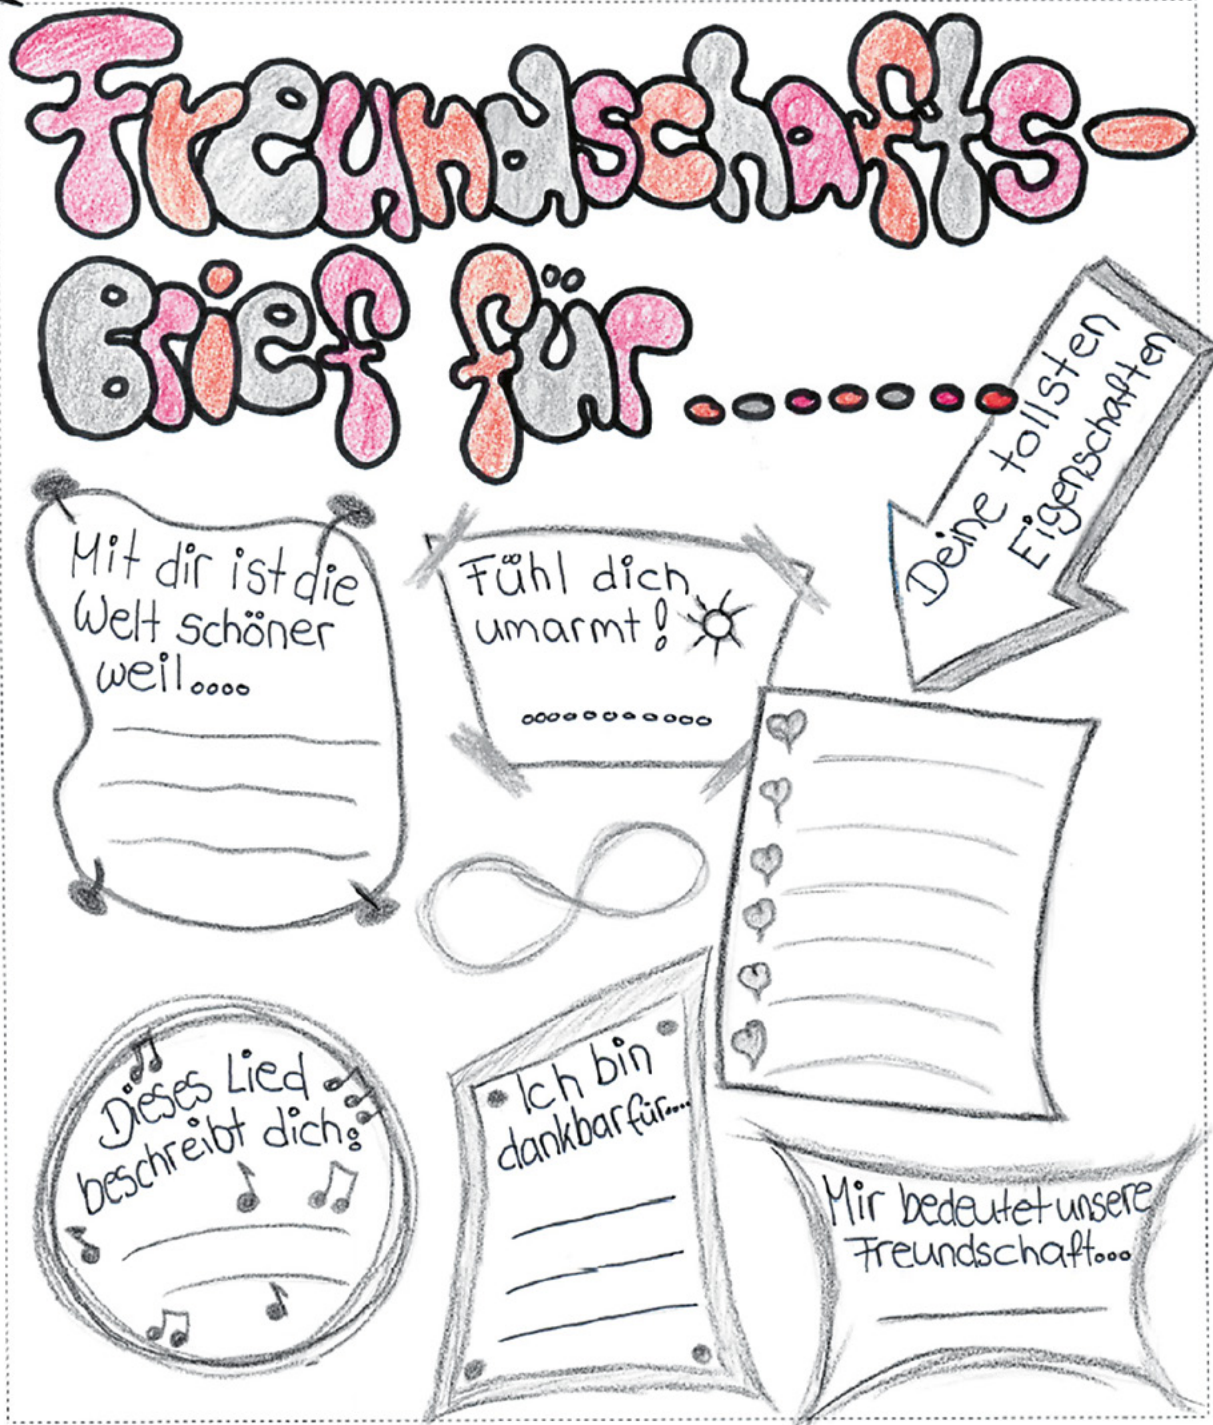 Freundschafts-
Brief für.......
Deine tollsten
Eigenschaften
Mit dir ist die
Welt schöner
weil....
Fühl dich
umarmt!
...........
Dieses Lied
beschreibt dich:
Ich bin
dankbar für....
Mir bedeutet unsere
Freundschaft...